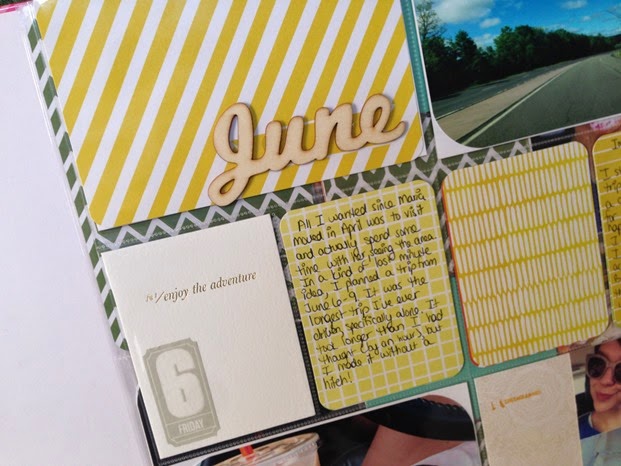 June
no 1/enjoy the adventure
6
FRIDAY
All I wanted since Maria
moved in April was to visit
and actually spend some
time with her seeing the area.
In a kind of last minute
idea, I planned a trip from
June 6-9. It was the
longest trip I've ever
driven specifically alone. It
took longer than I had
thought (by an hour), but
I made it without a
hitch!